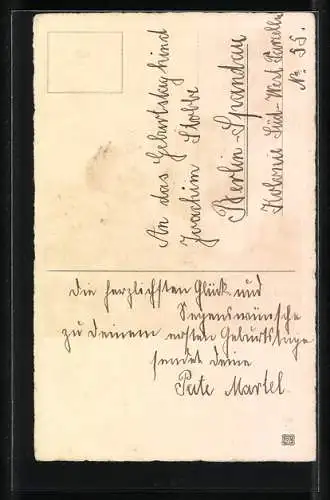 An das Geburtstagskind
Joachim Stobbe
Berlin-Spandau
Kolonie Süd-West Parzelle
No 55.
Die herzlichsten Glück und
Segenswünsche
zu deinem ersten Geburtstage
sendet deine
Pate Martel.